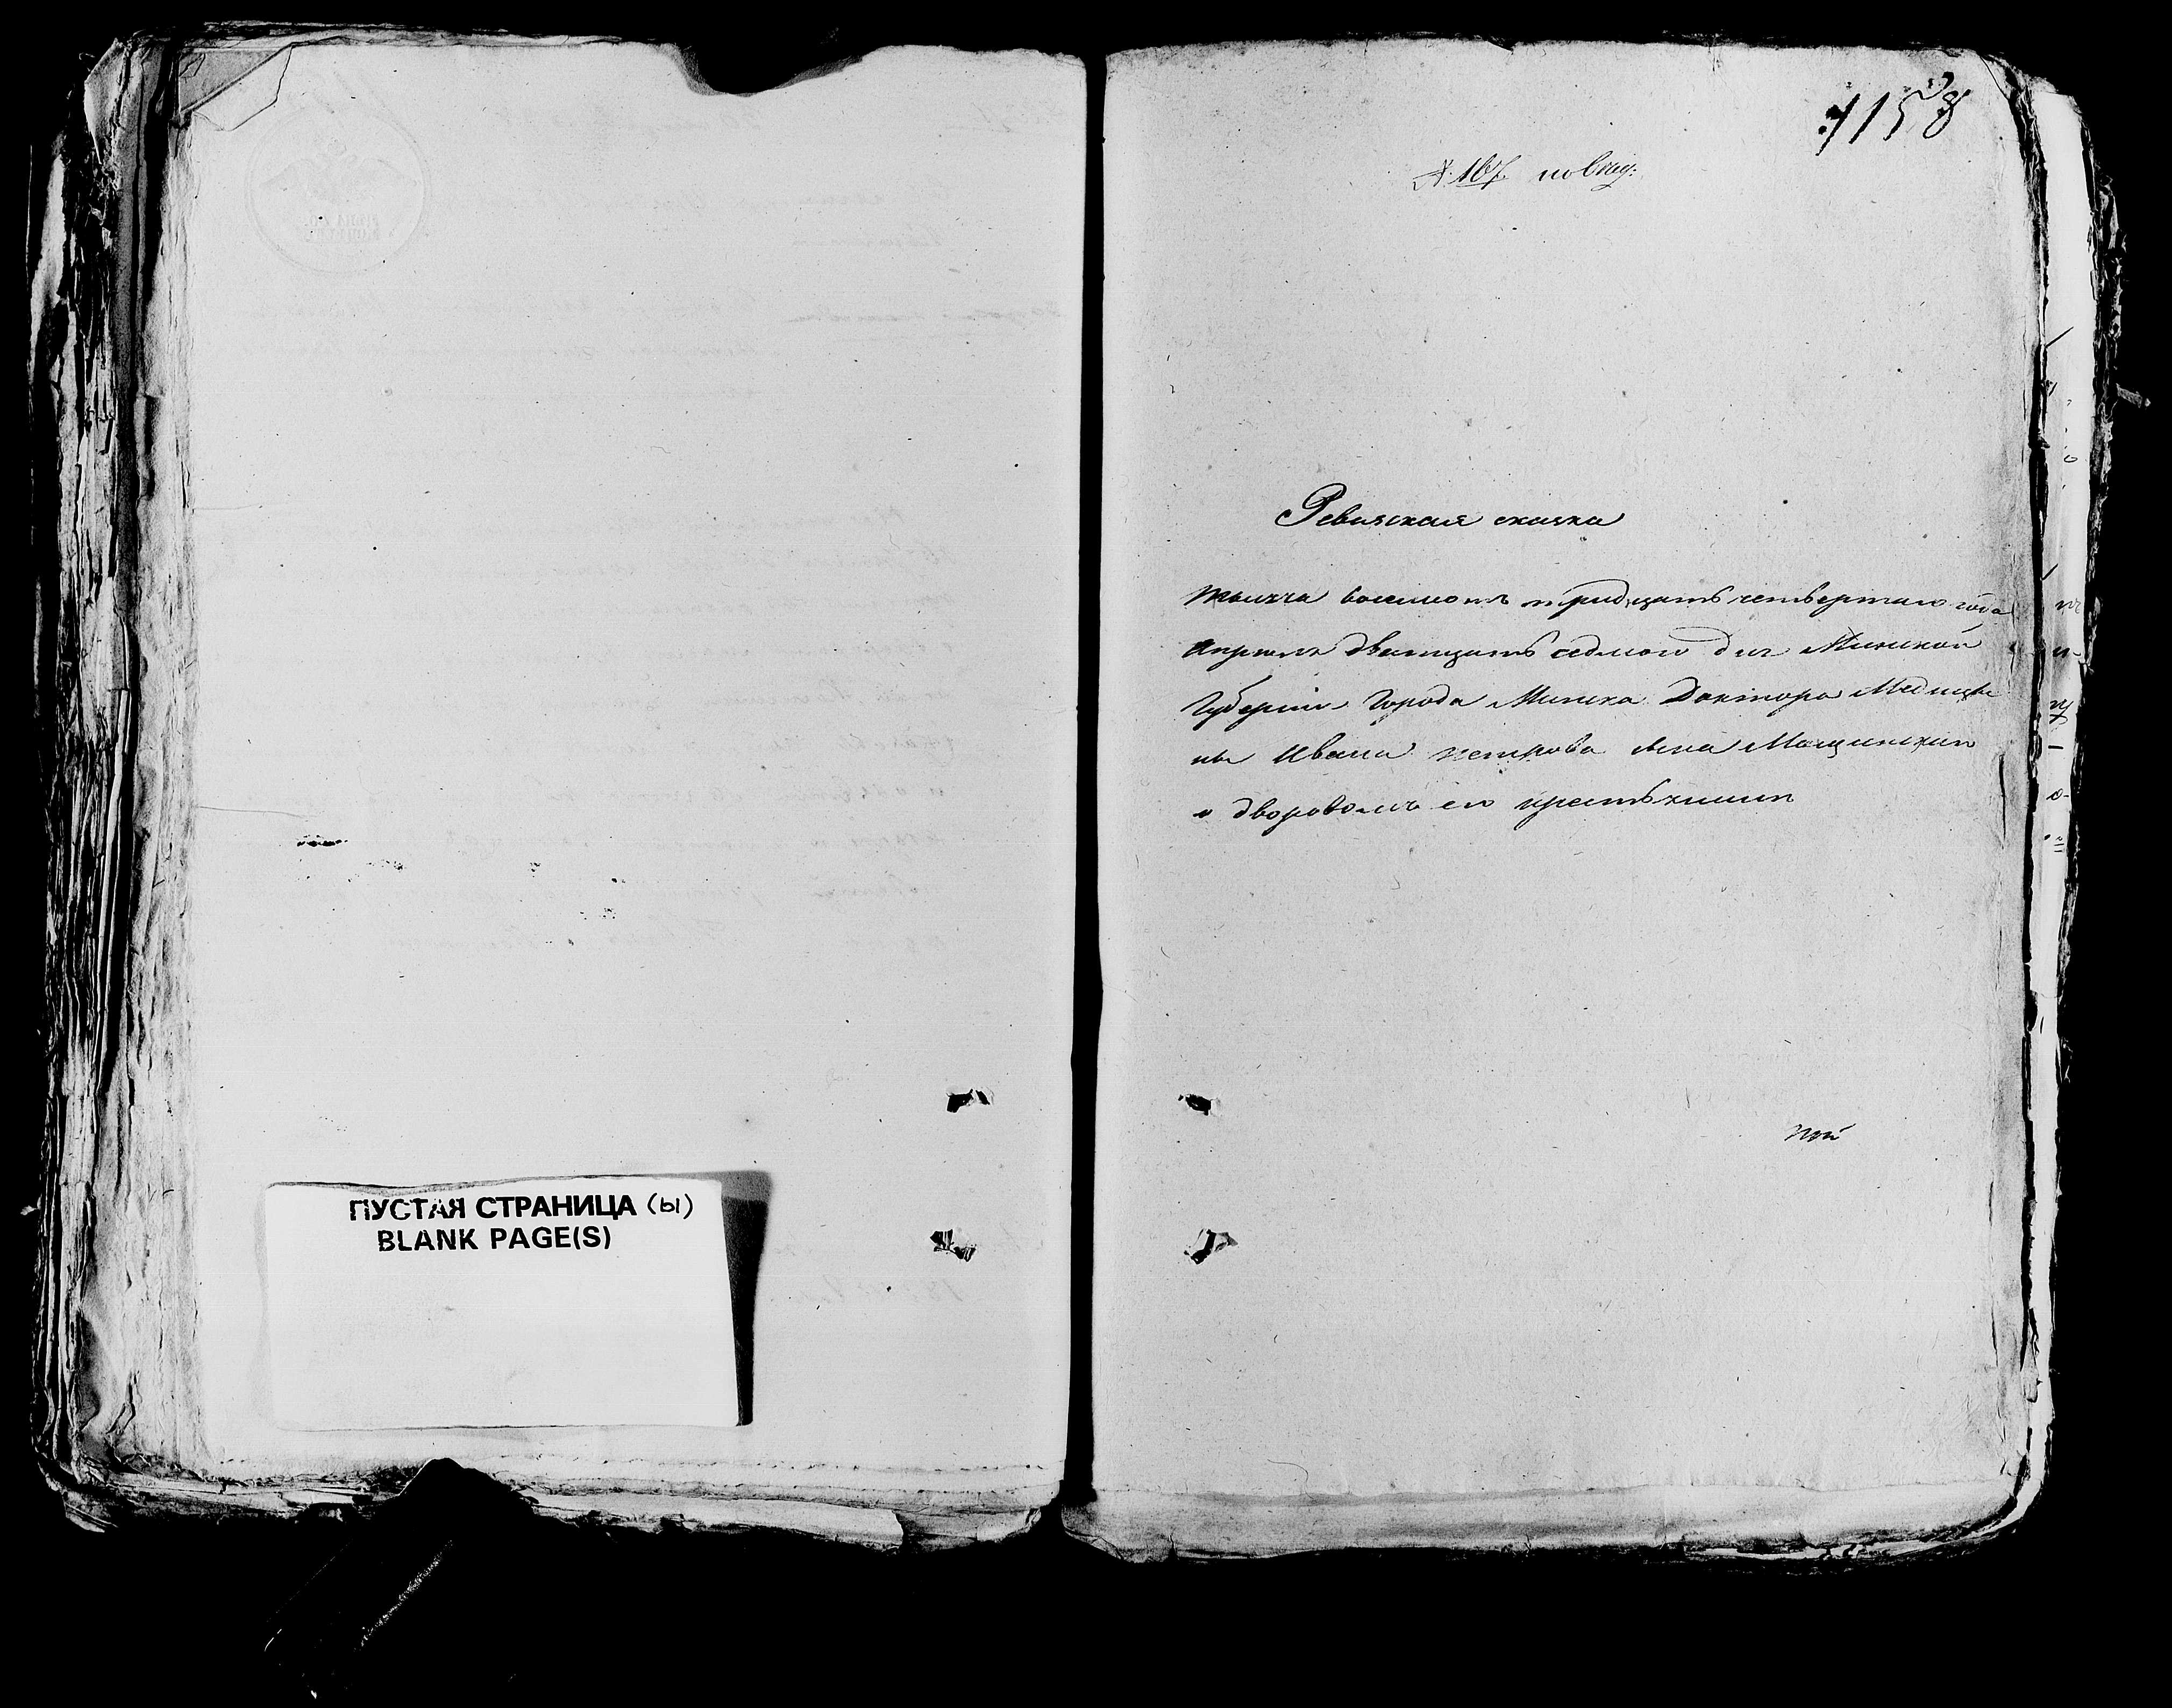 ПУСТАЯ СТРАНИЦА (Ы)
BLANK PAGE(S)
1158
№ 167. по вѣд:
Ревизская сказка
тысяча восемсотъ тридцать четвертаго года
Апреля дватцать седмого дня Минской
Губернiи Города Минска Доктора Медици
ны Ивана петрова сына Мащинскаго
о дворовомъ его крестьянинѣ